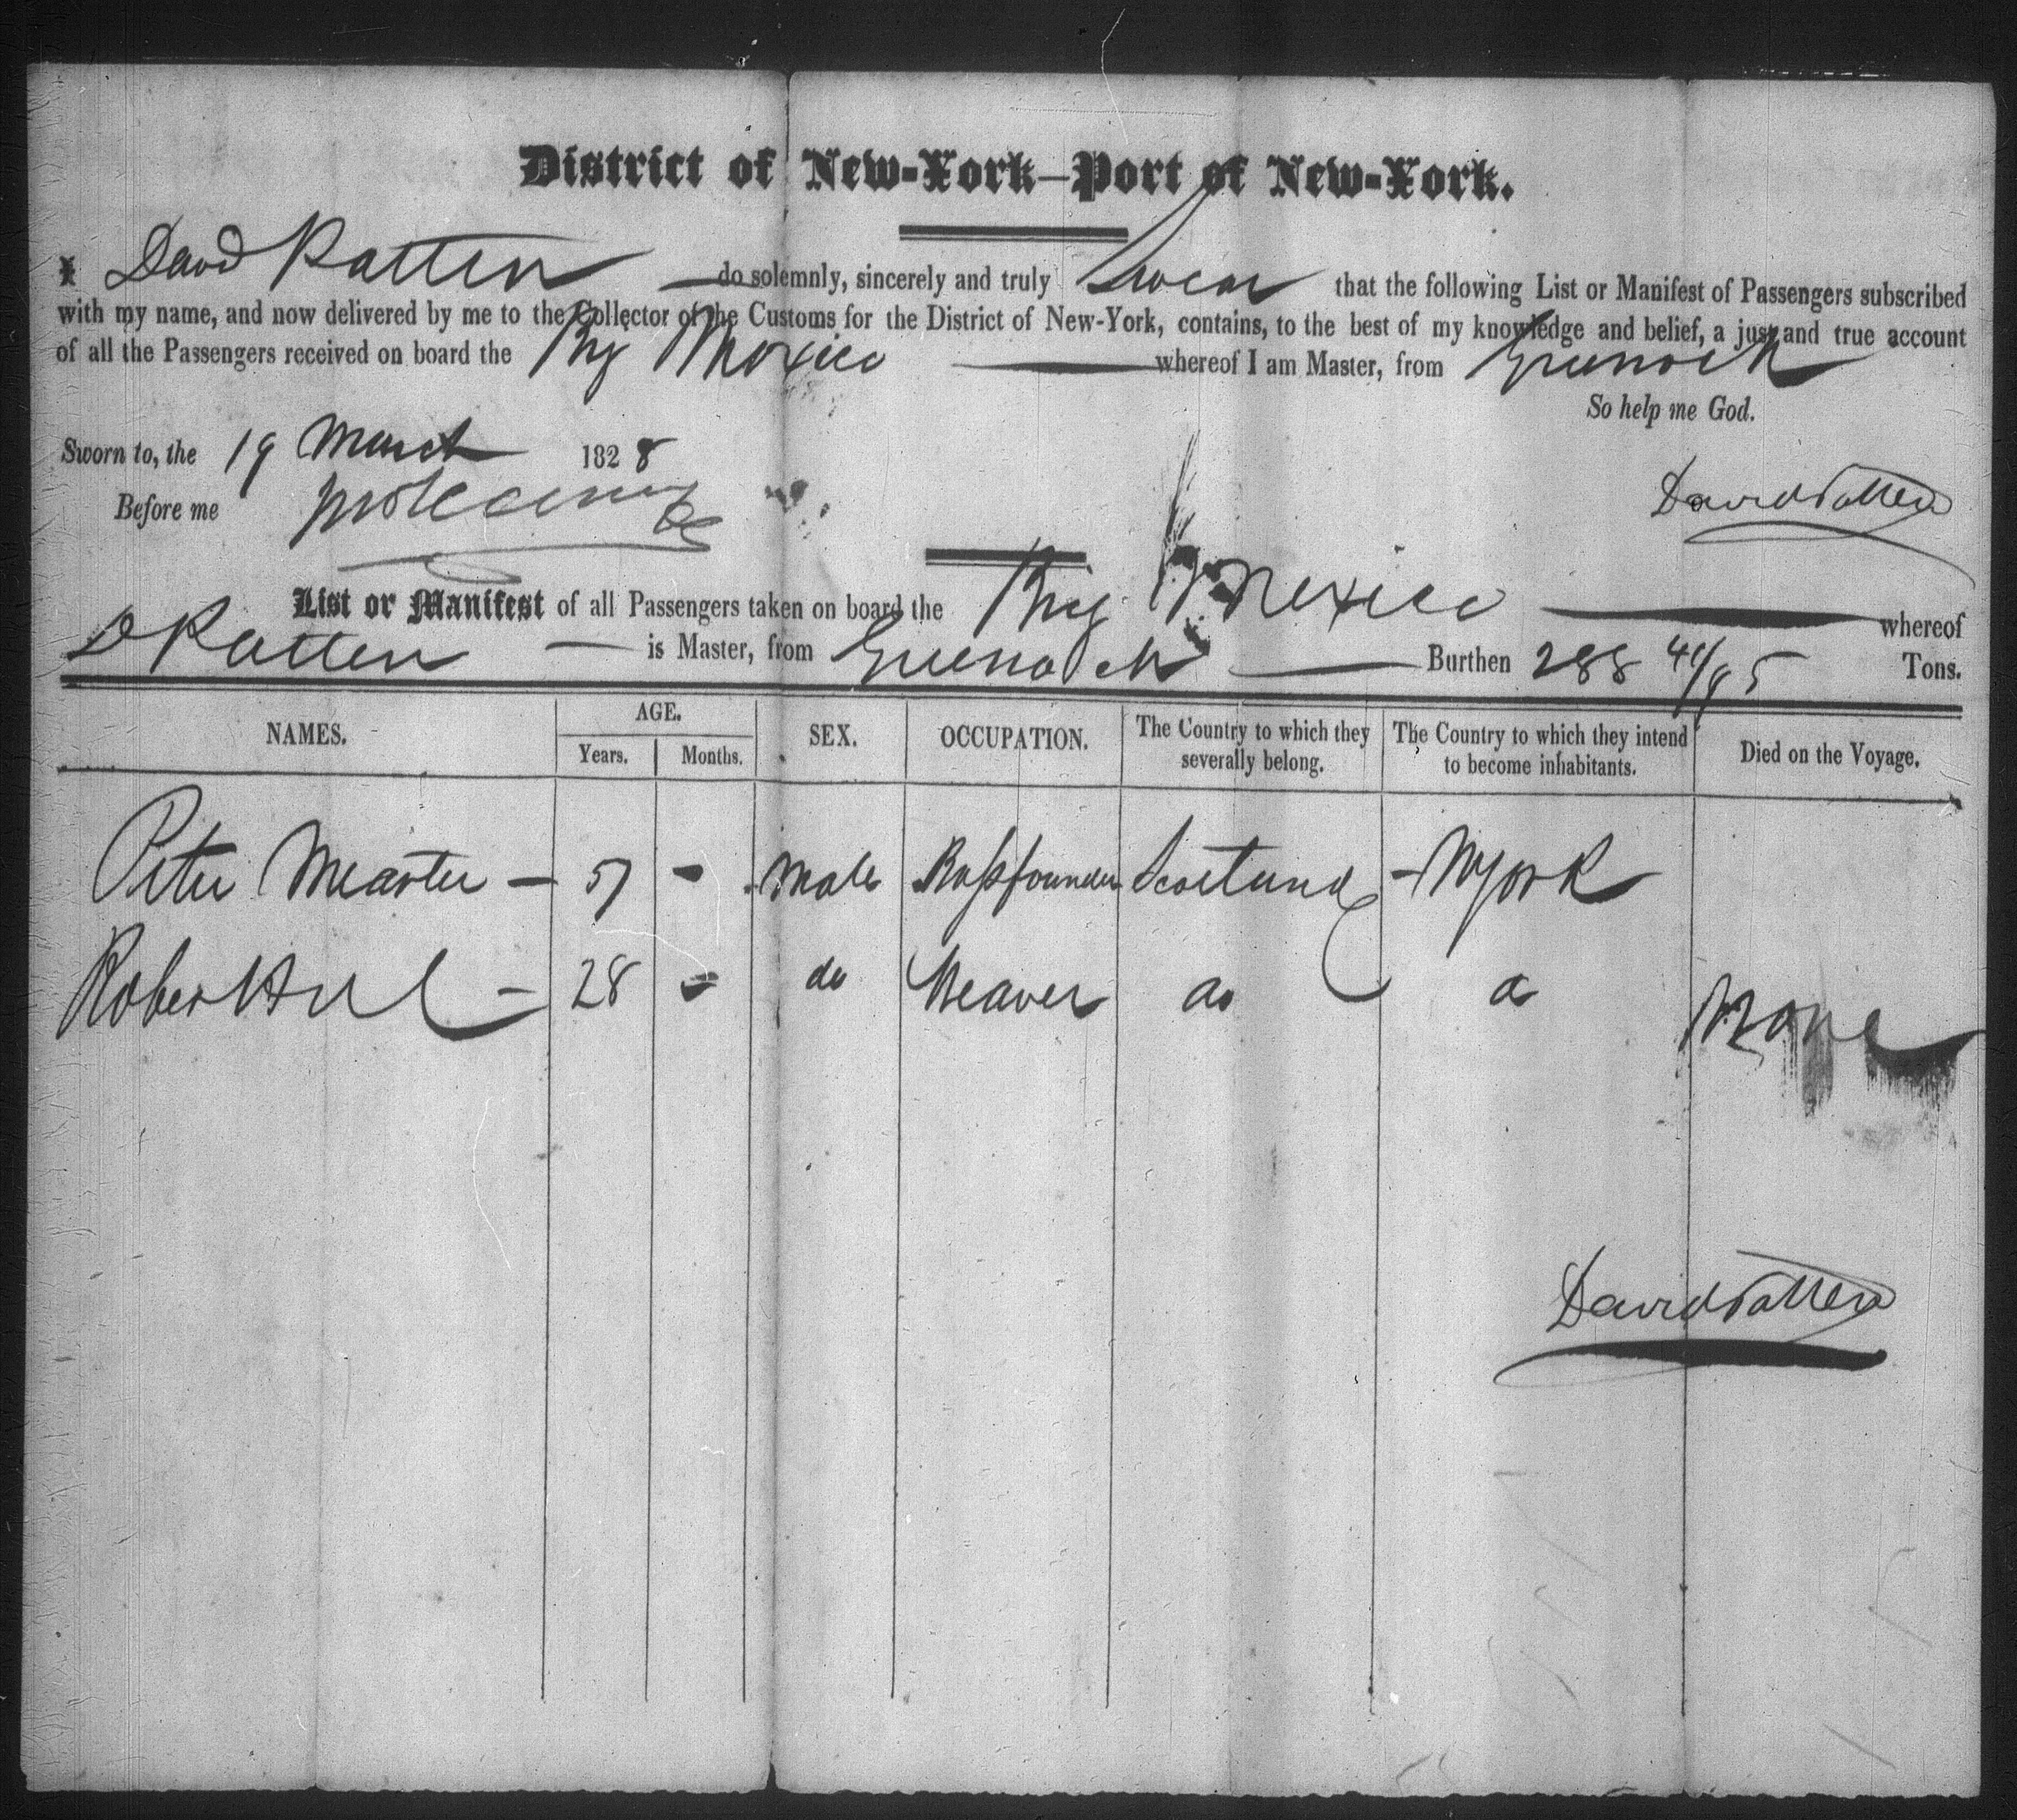 District of New-York—Port of New-York.
I David Patten do solemnly, sincerely and truly Swear that the following List or Manifest of Passengers subscribed
with my name, and now delivered by me to the Collector of the Customs for the District of New-York, contains, to the best of my knowledge and belief, a just and true account
of all the Passengers received on board the Brig Mexico whereof I am Master, from Greenock
So help me God.
Sworn to, the 19 March 1828
Before me
David Patten
List or Manifest of all Passengers taken on board the Brig Mexico whereof
D Patten is Master, from Greenock Burthen 288 41/95 Tons.
NAMES. AGE. Years. Months. SEX. OCCUPATION. The Country to which they severally belong. The Country to which they intend to become inhabitants. Died on the Voyage.
Peter Master — 57 - Male Brassfounder Scotland - NYork
Robert Hill — 28 - do Weaver do do None
David Patten